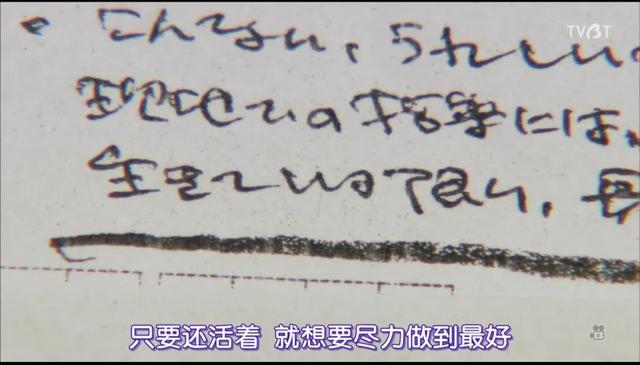 TVBT
こんなに、うれしい
現地での授業には、
生きている限り、長
只要还活着 就想要尽力做到最好